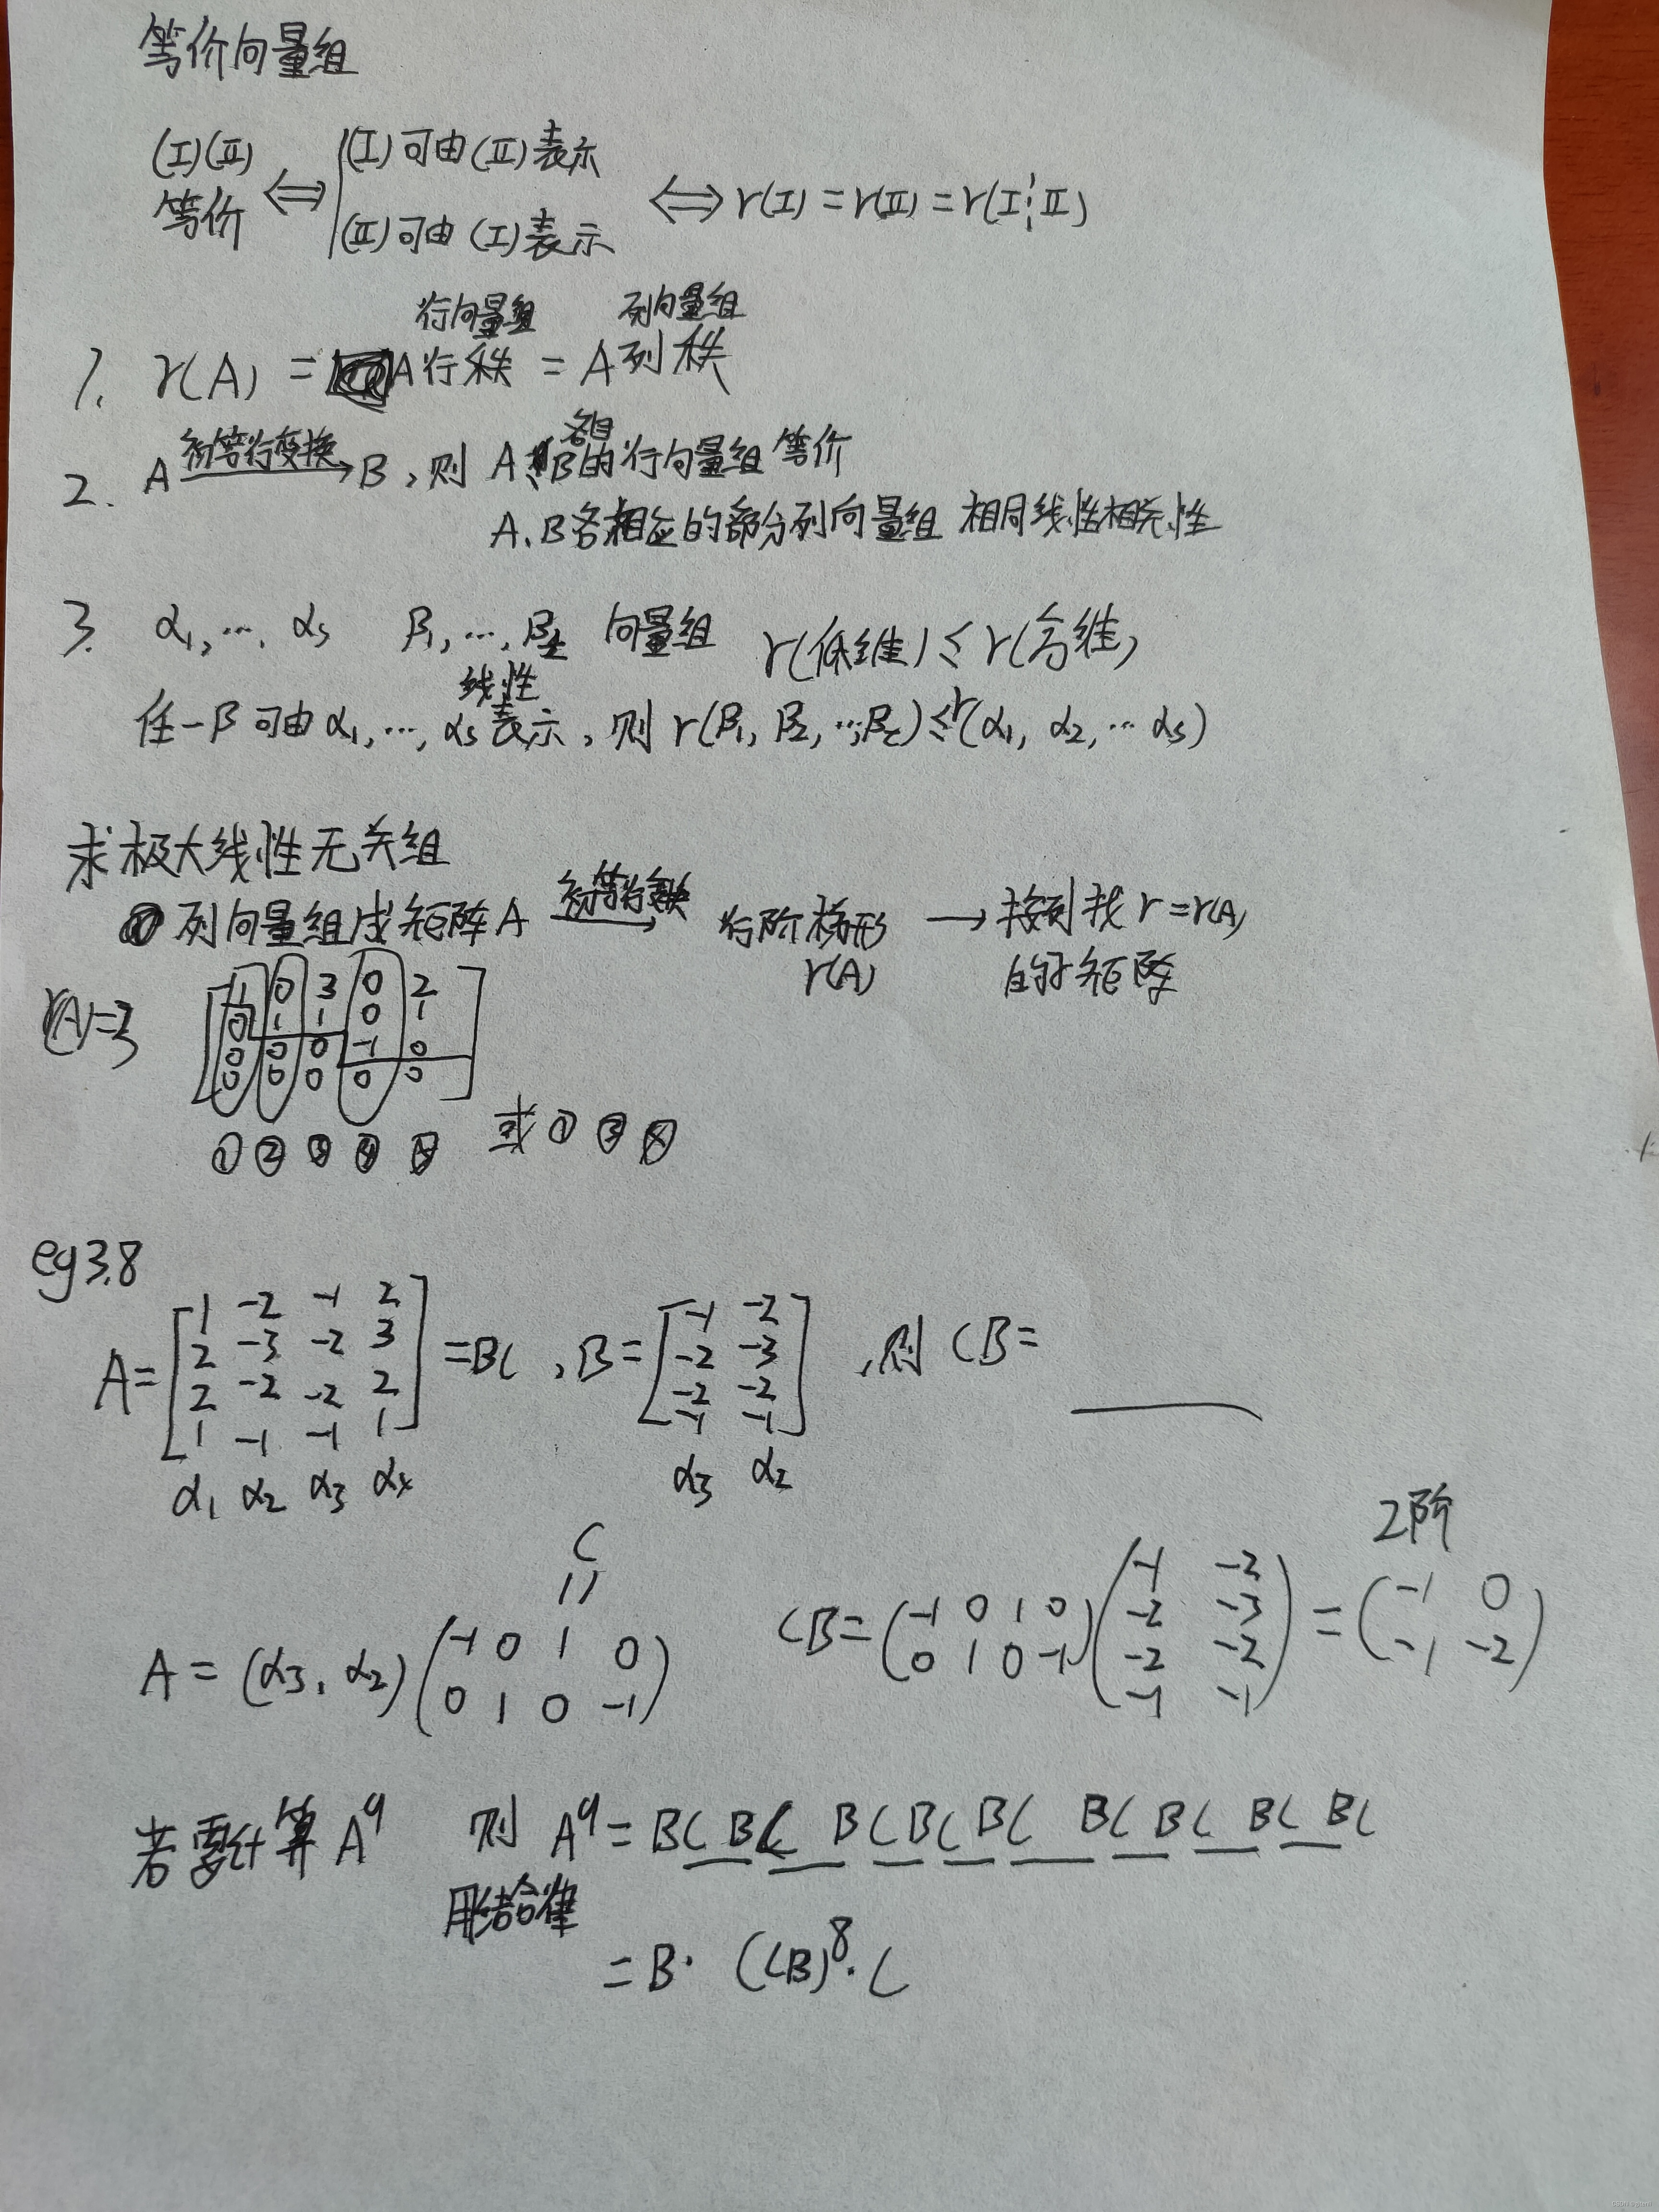 等价向量组
(I)(II) 等价 ⟺ (I)可由(II)表示 (II)可由(I)表示 ⟺ r(I)=r(II)=r(I⋮II)
行向量组 列向量组
1. r(A) = A行秩 = A列秩
2. A 初等行变换→ B, 则 A、B各自的行向量组等价
A、B各相应的部分列向量组 相同线性相关性
3. α₁,…, αs β₁,…, βt 向量组 r(低维) ≤ r(高维)
任一β可由α₁,…, αs线性表示, 则 r(β₁, β₂, …, βt) ≤ r(α₁, α₂, … αs)
求极大线性无关组
① 列向量组成矩阵A 初等行变换→ 行阶梯形 r(A) → 按列找 r=r(A) 的子矩阵
r(A)=3
[1 0 3 0 2
0 1 1 0 1
0 0 0 -1 0
0 0 0 0 0]
① ② ③ ④ ⑤ 或 ① ③
eg 3.8
A = [1 -2 -1 2
2 -3 -2 3
2 -2 -2 2
1 -1 -1 1] = BC, B = [-1 -2
-2 -3
-2 -2
-1 -1], 则 CB =
α₁ α₂ α₃ α₄ α₃ α₂
C
||
A = (α₃, α₂) (-1 0 1 0
0 1 0 -1)
2阶
CB = (-1 0 1 0
0 1 0 -1) (-1 -2
-2 -3
-2 -2
-1 -1) = (-1 0
-1 -2)
若要计算 A⁹ 则 A⁹ = BC BC BC BC BC BC BC BC BC
用结合律
= B · (CB)⁸ · C